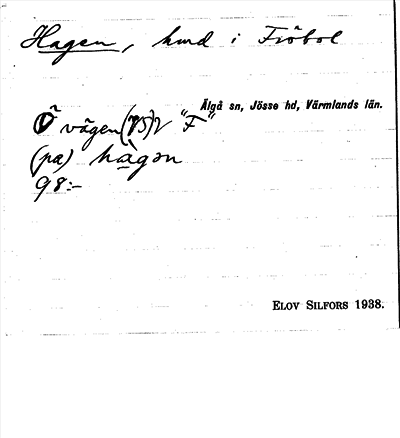 Hagen, hmd i Fröbol
Älgå sn, Jösse hd, Värmlands län.
Ö vägen (VS) V "F"
(pa) hàgən
98:-
ELOV SILFORS 1938.